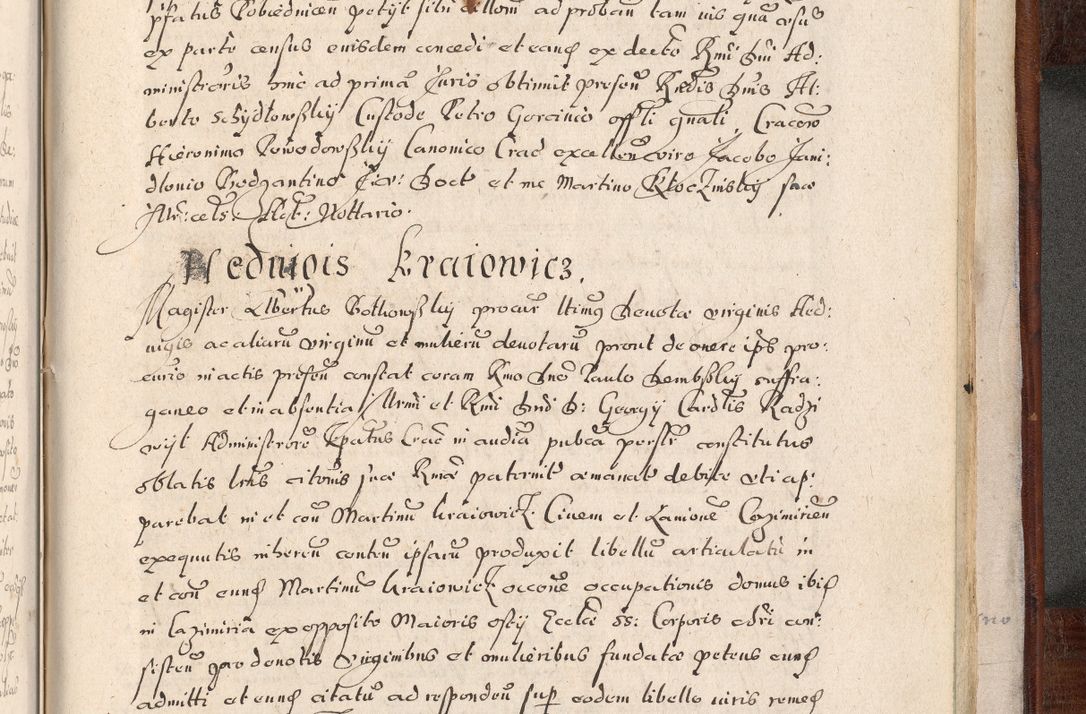 pfatus Pobiedniceñ petijt sibi dillom ad proband tam iuis qua usus
ex parte census euisdem concedi et eandem ex decto Rmi Dni Ad:
ministroris tunc ad prima Juris obtinuit presen Rndis Dnis Al:
berto Schydlowsky Custode Petro Gorcinio offli gnali, Cracoven
Hieronimo Powodowsky Canonico Crac excellen viro Jacobo Jani:
dlonio Bodzantino Jur: Doct et me Martino Kłoczinsky sacr
Aplr: celb: Act: Nottario.
Heduigis Kraiowicz.
Magister Albertus Bothowsky procur ltimg Deuotæ virginis Hed:
uigis ac aliaru virginu et mulieru deuotaru prout de onere ips pro:
curis in actis presen constat coram Rmo Dno Paulo Dembsky suffra:
ganeo et in absentia Illrmi et Rmi Dni D: Georgy Cardlis Radzi
wijl Administrore Epatus Crac in audia pubca persr constitutus
oblatis lris citonis suæ Rmæ paternit emanat debite uti ap:
parebat in et con Martinu Kraiowick Ciuem et Lanione Cazimirien
exequutis inheren conten ipsaru produxit libellu articulatu in
et con eund Martinu Kraiowick occone occupationis domus ibid
in Cazimiria ex opposito Maioris ostij Eccliæ SS: Corporis Chri con:
sisten pro deuotis Virginibus et mulieribus fundatæ petens eund
admitti et eund citatu ad responden sup eodem libello iuris remed